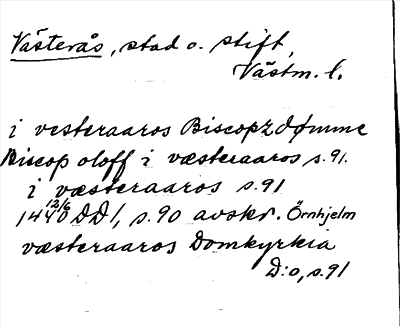 Västerås, stad o. stift,
Västm. l.
i vesteraaros Biscopzdømme
Biscop oloff i væsteraaros s. 91.
i væsteraaros s. 91
1440 12/6 DD1, s. 90 avskr. Örnhjelm
væsteraaros Domkyrkia
D:o, s. 91